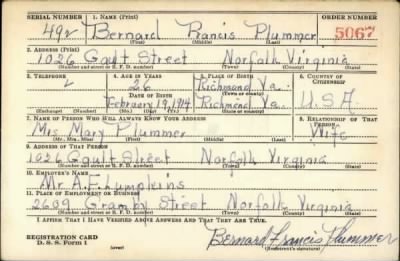 SERIAL NUMBER 1. NAME (Print) ORDER NUMBER
492 Bernard Francis Plummer 5067
(First) (Middle) (Last)
2. ADDRESS (Print)
1026 Gault Street Norfolk Virginia
(Number and street or R. F. D. number) (Town) (County) (State)
3. TELEPHONE 4. AGE IN YEARS 5. PLACE OF BIRTH 6. COUNTRY OF CITIZENSHIP
26 Richmond Va.
DATE OF BIRTH (Town or county)
February 19, 1914 Richmond Va. U.S.A.
(Exchange) (Number) (Mo.) (Day) (Yr.) (State or country)
7. NAME OF PERSON WHO WILL ALWAYS KNOW YOUR ADDRESS 8. RELATIONSHIP OF THAT PERSON
Mrs Mary Plummer Wife
(Mr., Mrs., Miss) (First) (Middle) (Last)
9. ADDRESS OF THAT PERSON
1026 Gault Street Norfolk Virginia
(Number and street or R. F. D. number) (Town) (County) (State)
10. EMPLOYER'S NAME
Mr A.F. Lumpkins
11. PLACE OF EMPLOYMENT OR BUSINESS
2609 Granby Street Norfolk Virginia
(Number and street or R. F. D. number) (Town) (County) (State)
I AFFIRM THAT I HAVE VERIFIED ABOVE ANSWERS AND THAT THEY ARE TRUE.
REGISTRATION CARD
D. S. S. Form 1 (over) Bernard Francis Plummer
(Registrant's signature)